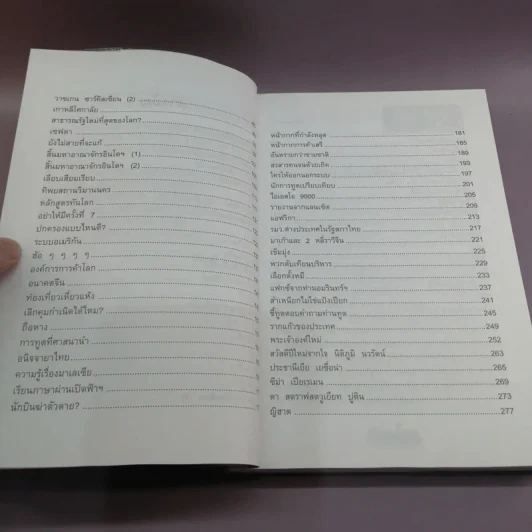 วาซเกน ซาร์คิสเซียน (2)
เกาหลีโศกาลัย
สาธารณรัฐใหม่ที่สุดของโลก?
เซฟดา
ยังไม่สายที่จะแก้
สิ้นมหาอาณาจักรอินโดฯ (1)
สิ้นมหาอาณาจักรอินโดฯ (2)
เลียบเสียมเรียบ
ทิพยสถานวิมานนคร
หลักสูตรทันโลก
อย่าให้มีครั้งที่ 7
ปกครองแบบไหนดี?
ระบบอเมริกัน
ช้อ ๆ ๆ ๆ ๆ
องค์การการค้าโลก
อนาคตจีน
ท่องเที่ยวเหี่ยวแห้ง
เลิกคุมกำเนิดได้ไหม?
ถือหาง
การทูตที่ศาสนานำ
อนิจจายาไทย
ความรู้เรื่องมาเลเซีย
เรียนภาษาผ่านเปิดฟ้าฯ
นักบินฆ่าตัวตาย?
หน้ากากที่กำลังหลุด 181
หน้ากากการค้าเสรี 185
อันตรายกว่าชายชาติ 189
สงสารทนจนด้วยเถิด 193
ใครให้ออกนอกระบบ 197
นักการทูตเปรียบเทียบ 201
ไอเอสโอ 9000 205
รายงานจากแดนเซิต 209
แอฟริกา 213
รมว.ต่างประเทศในรัฐสภาไทย 217
มาเก๊าและ 2 หลี่ราวีจีน 221
เข็มมุ่ง 225
พวกดับเทียนบริหาร 229
เลือกตั้งหมี 233
แฟกซ์จากท่านอมรินทร์ฯ 237
สำเหนียกไม่ใช่แป๊งเปียก 241
ชี้ทูตตอบคำถามท่านทูต 245
รากแก้วของประเทศ 249
พระเจ้าองค์ใหม่ 252
สวัสดีปีใหม่จากใจ นิติภูมิ นวรัตน์ 263
ประชานีเปีย เยซื่อน่า 265
ซีม่า เปียเรเมน 269
ดา สตราฟสตวูเยียท ปูติน 273
ญิฮาด 277